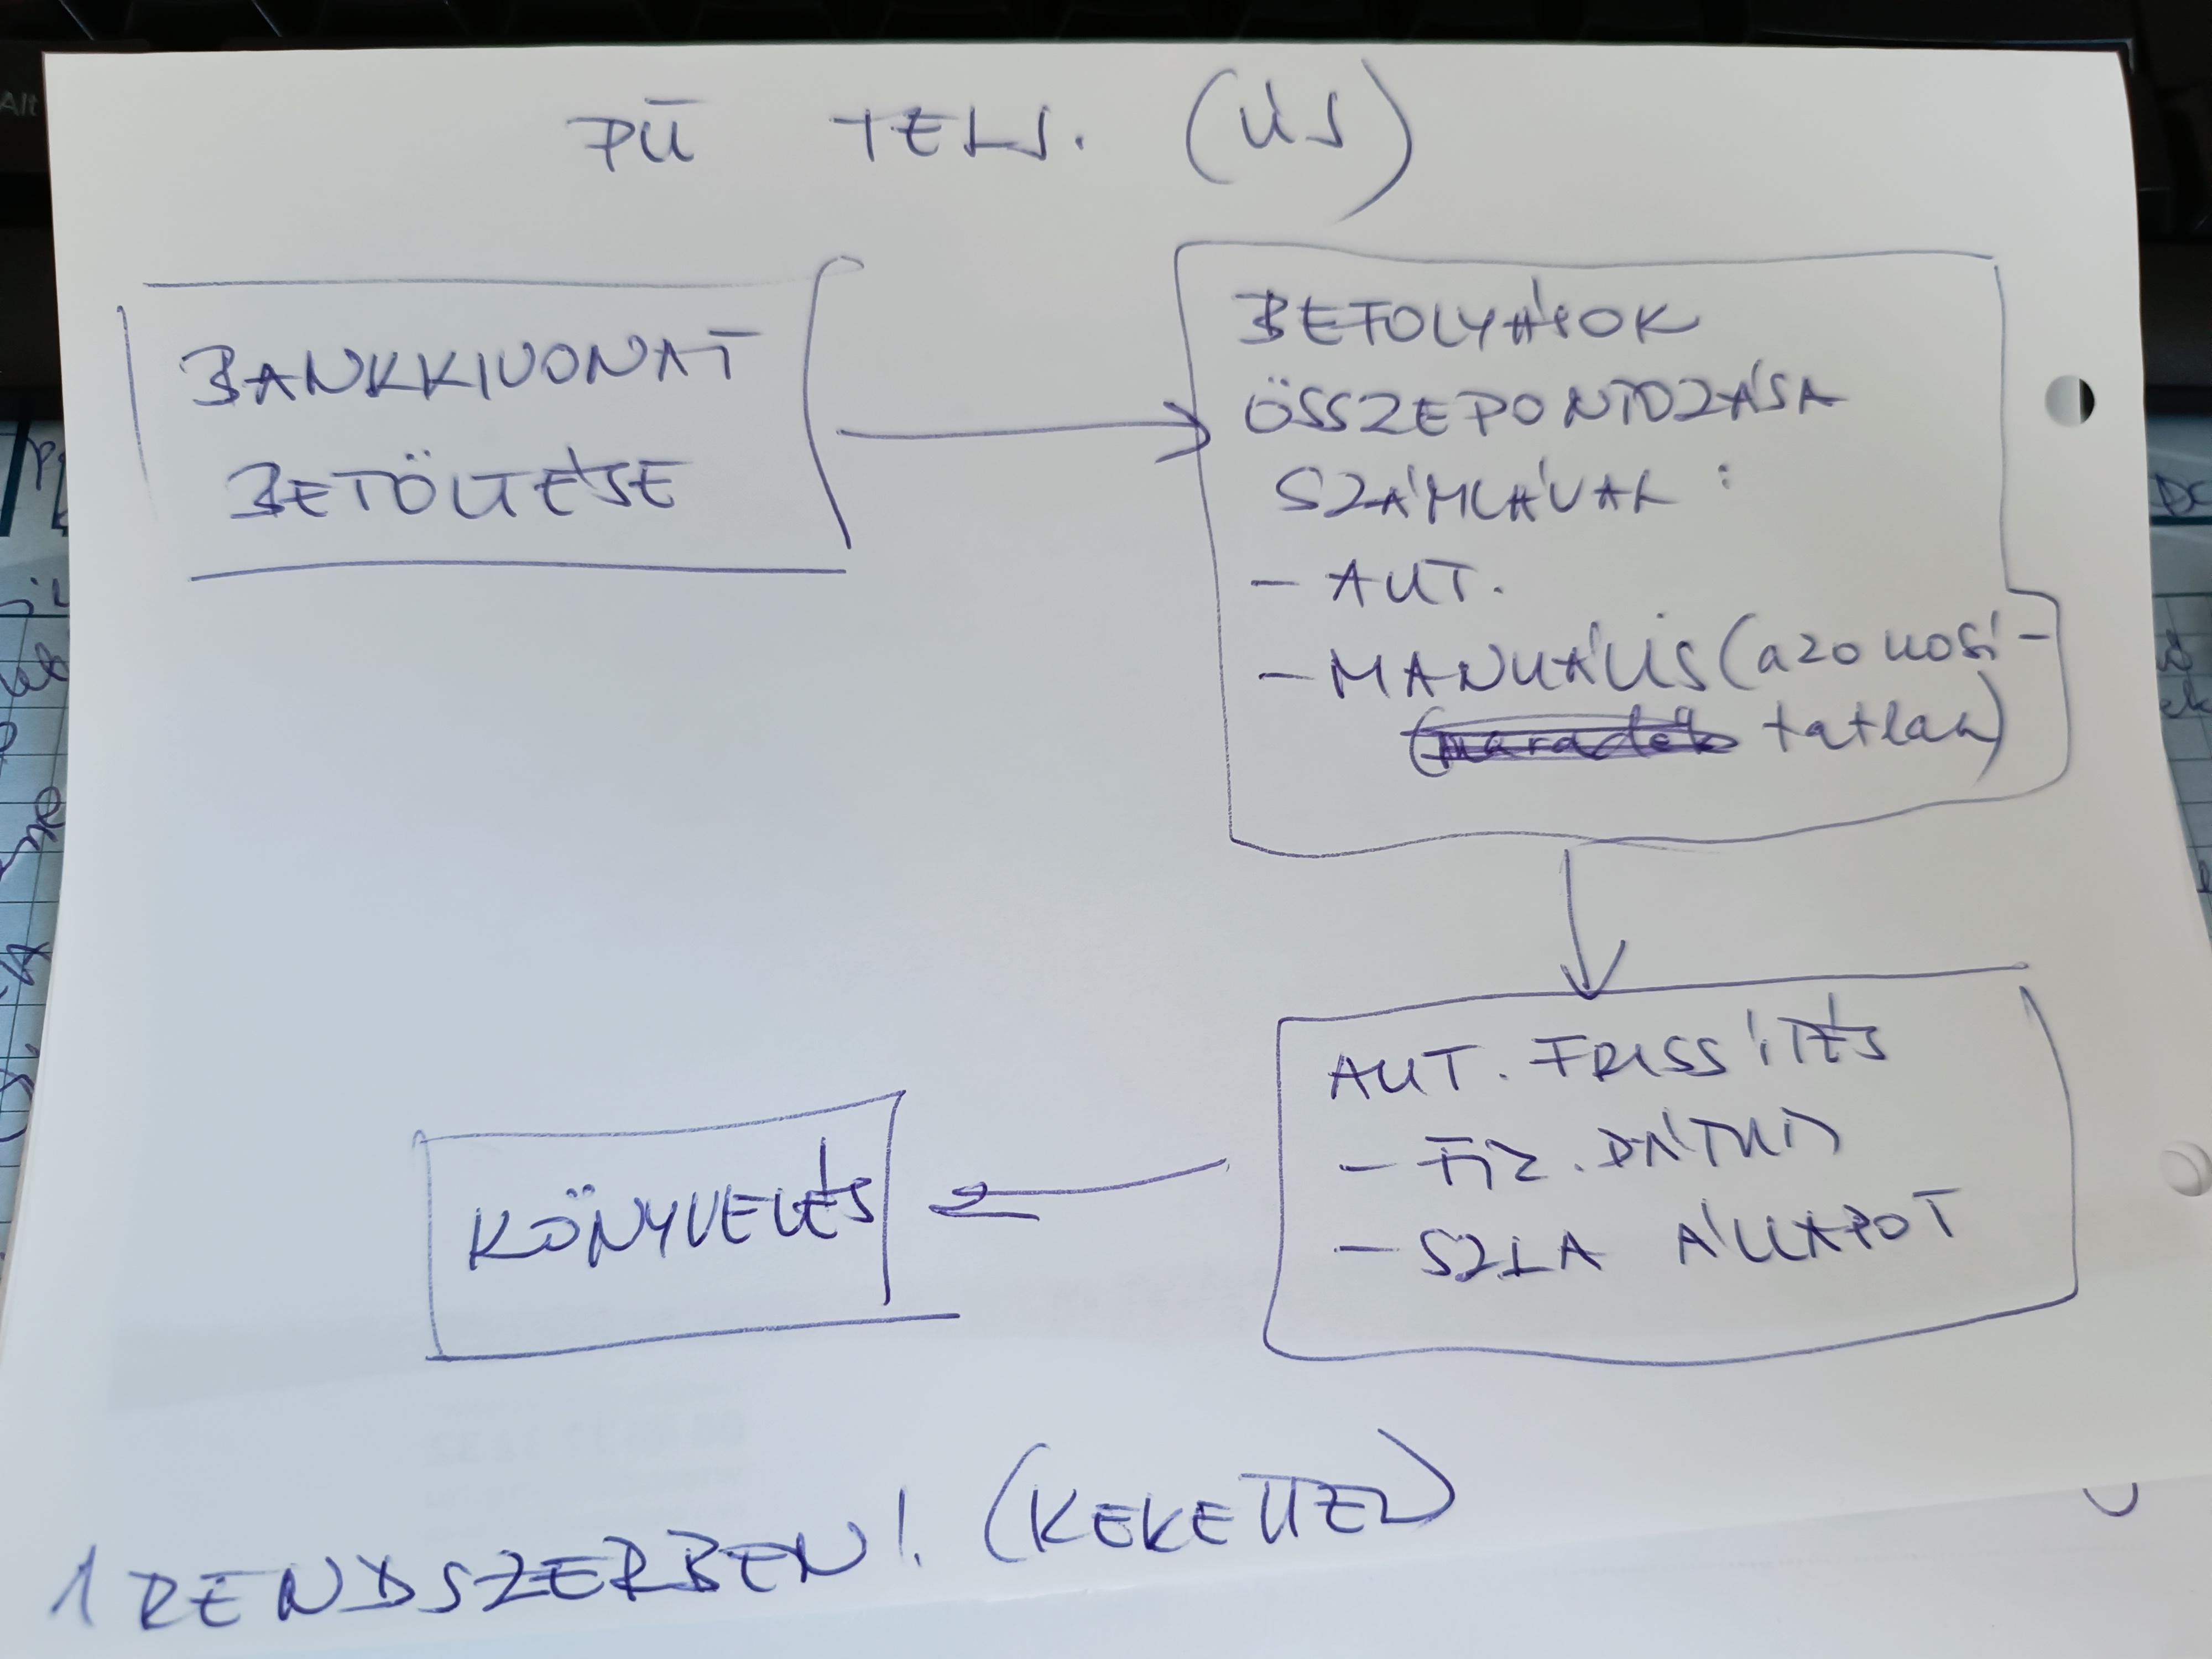 PÜ TELJ. (ÚJ)
BANKKIVONAT
BETÖLTÉSE
BEFOLYÁSOK
ÖSSZEPONTOZÁSA
SZÁMLÁVAL :
- AUT.
- MANUÁLIS (azonosí-
tatlan)
AUT. FRISSÍTÉS
- FIZ. DÁTUM
- SZLA ÁLLAPOT
KÖNYVELÉS
1 RENDSZERBEN!